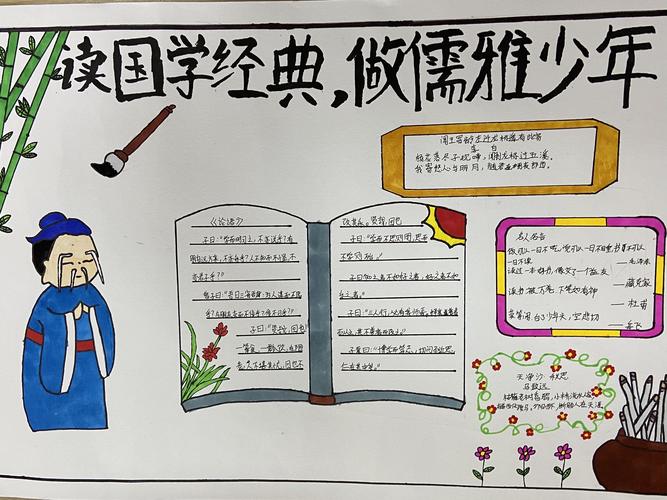 读国学经典,做儒雅少年
闻王昌龄左迁龙标遥有此寄
李白
杨花落尽子规啼,闻道龙标过五溪。
我寄愁心与明月,随君直到夜郎西。
《论语》
子曰:"学而时习之,不亦说乎?有
朋自远方来,不亦乐乎?人不知而不愠,不
亦君子乎?"
曾子曰:"吾日三省吾身:为人谋而不忠
乎?与朋友交而不信乎?传不习乎?"
子曰:"贤哉,回也
一箪食,一瓢饮,在陋
巷,人不堪其忧,回也不
改其乐。贤哉,回也
子曰:"学而不思则罔,思而
不学则殆。"
子曰:"知之者不如好之者,好之者不如
乐之者。
子曰:"三人行,必有我师焉。择其善者而
从之,其不善者而改之。"
子夏曰:"博学而笃志,切问而近思,
仁在其中矣。"
名人名言
饭可以一日不吃,觉可以一日不睡,书不可以
一日不读 ——毛泽东
读过一本好书,像交了一个益友
——臧克家
读书破万卷,下笔如有神
——杜甫
莫等闲 白了少年头,空悲切
——岳飞
天净沙·秋思
马致远
枯藤老树昏鸦,小桥流水人家